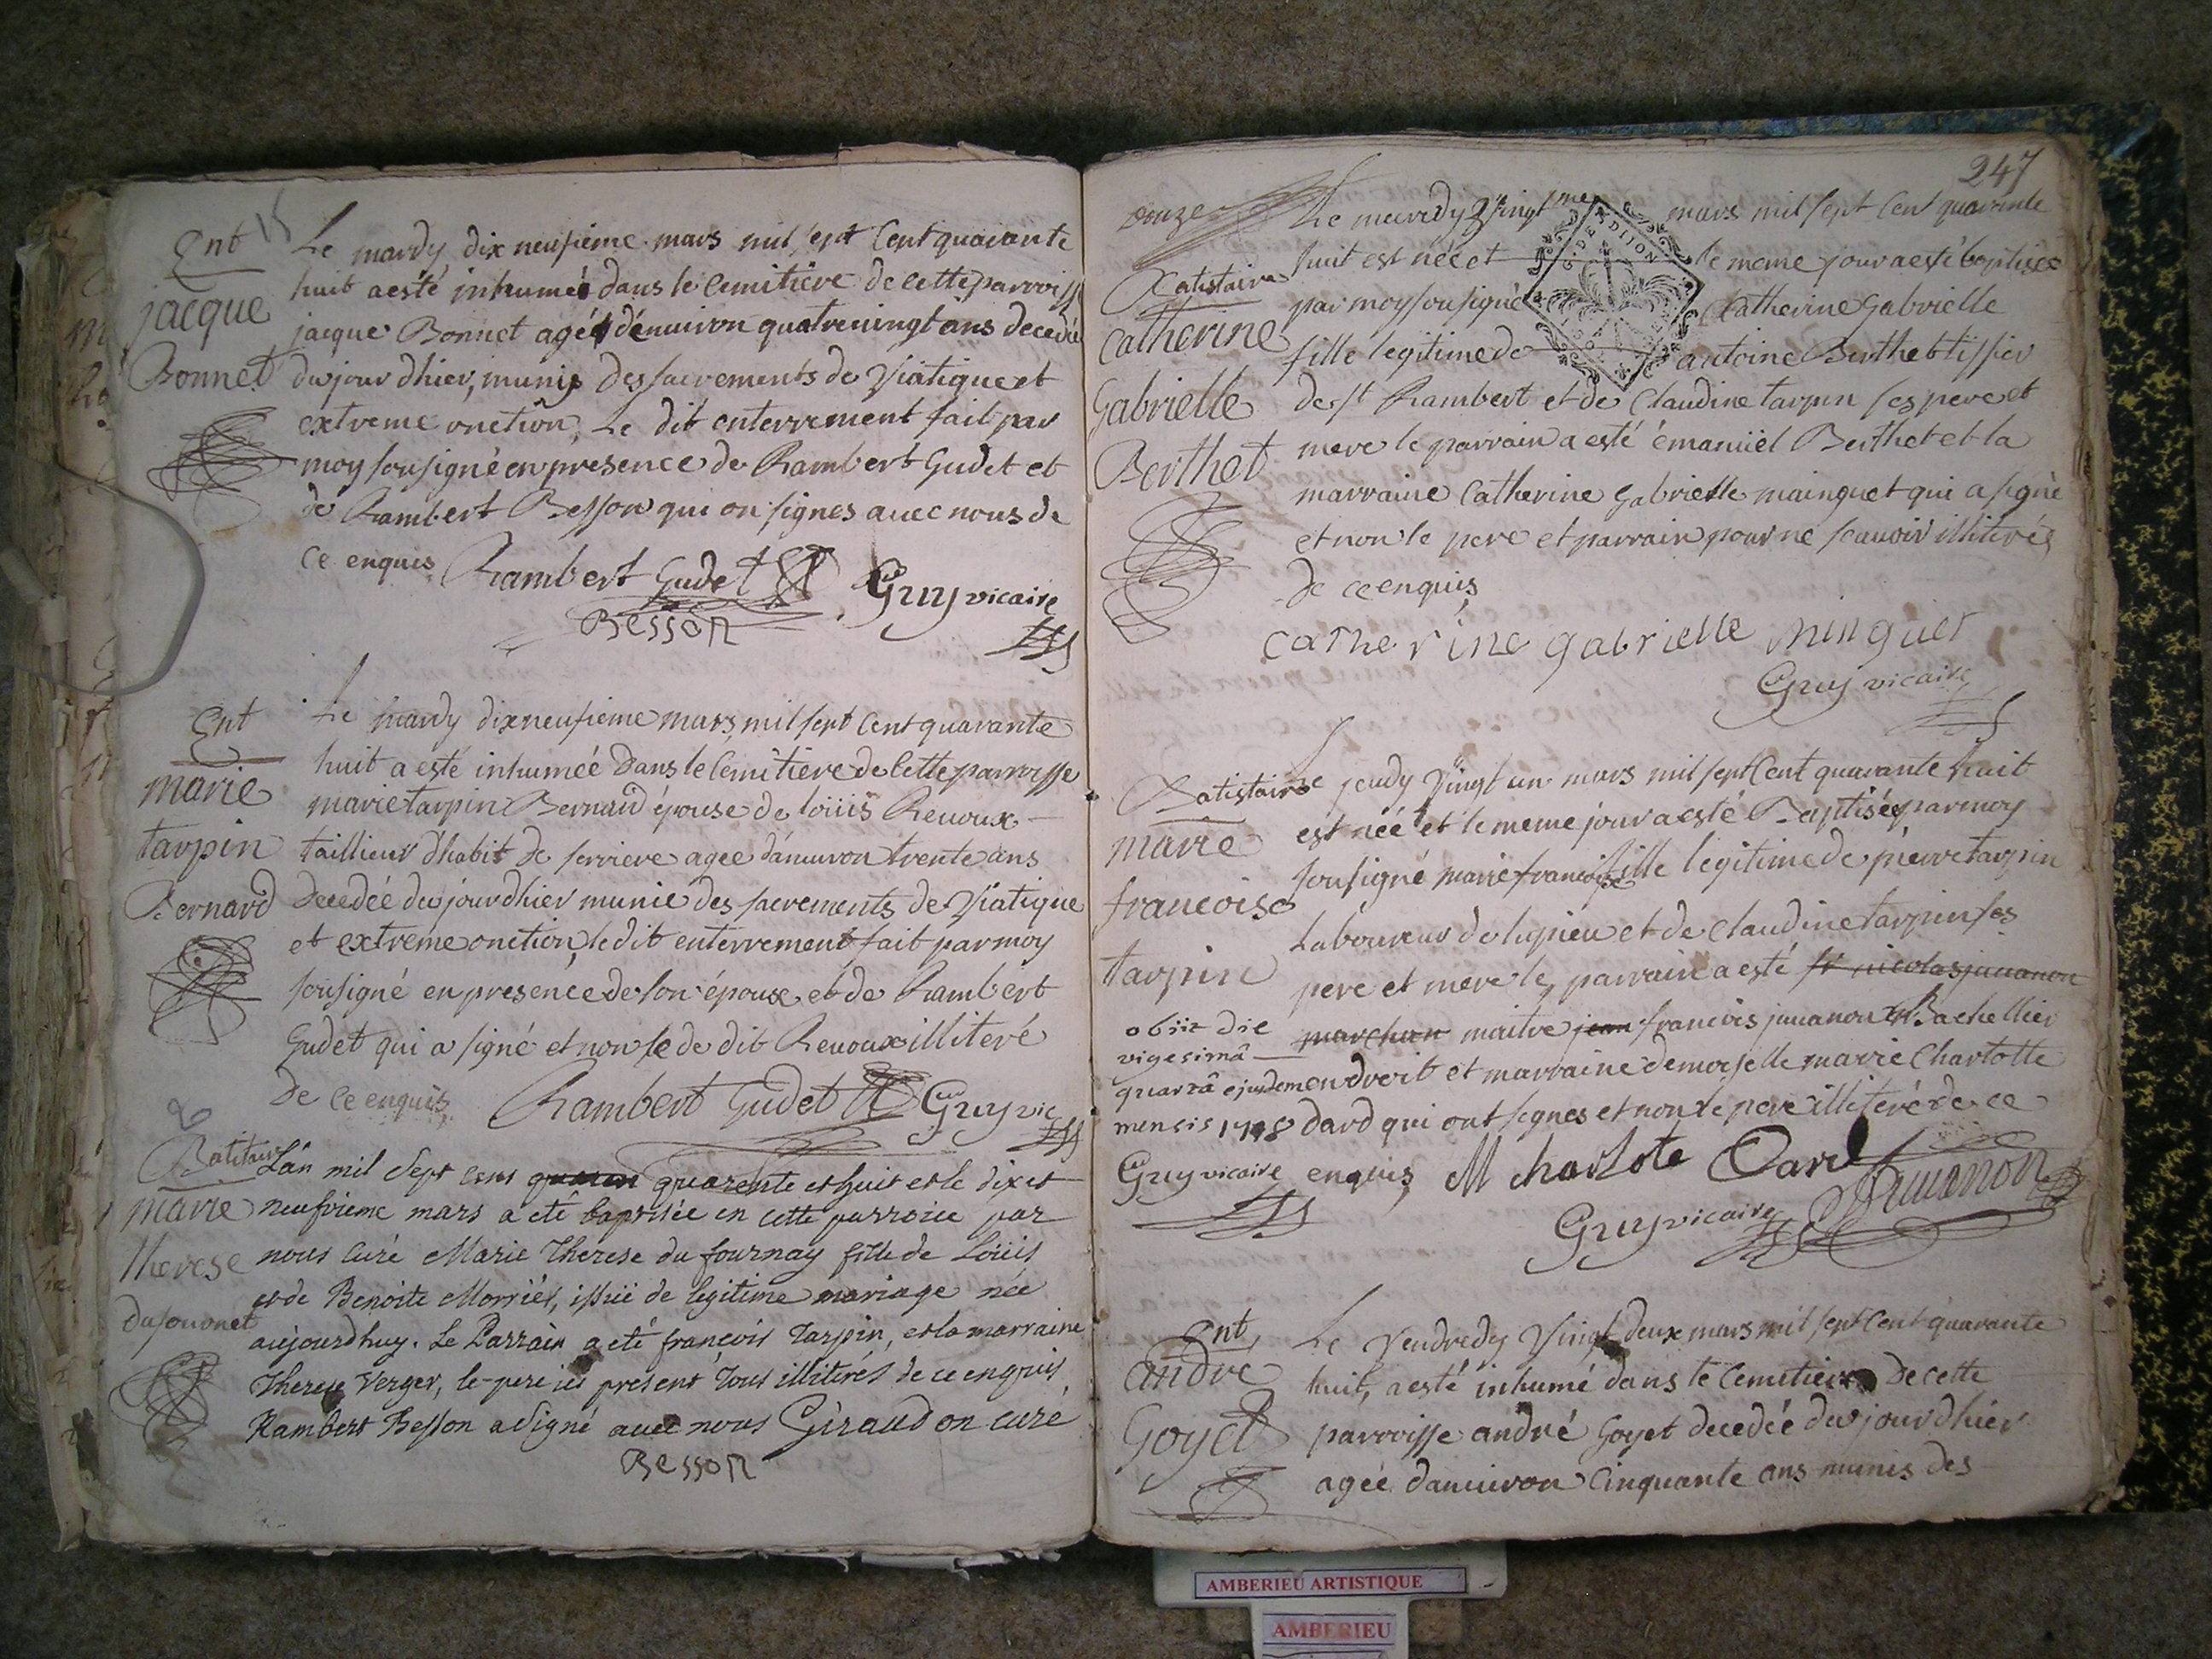 Ent
jacque
Bonnet
Le mardy dix neufieme mars mil sept Cent quarante
huit a esté inhumé dans le Cemitiere de cette parroiss
jacque Bonnet agé d'enuiron quatreuingt ans decedé
du jour dhier, munis des sacrements de Viatique et
extreme onction, Le dit enterrement fait par
moy sousigné en presence de Rambert Gudet et
de Rambert Besson qui on signes auec nous de
ce enquis Rambert Gudet Gruy vicaire
Besson
Ent
marie
tarpin
Bernard
Le mardy dixneufieme mars, mil sept Cent quarante
huit a esté inhumée dans le Cemitiere de Cette parroisse
marie tarpin Bernard épouse de loüis Reuoux
taillieur d'habit de serriere agee d'enuiron trente ans
decedée du jour dhier munie des sacrements de Viatique
et extreme onction, le dit enterrement fait par moy
sousigné en presence de son époux et de Rambert
Gudet qui a signé et non le de dit Reuoux illiteré
de ce enquis Rambert Gudet Gruy vic
Batitaire
marie
therese
dufouonet
Lan mil sept cens quaran quarente et huit et le dix et
neufvieme mars a eté baptisée en cette parroice par
nous Curé Marie Therese du fournay fille de Loüis
et de Benoite Morrier, issüe de legitime mariage née
aujourdhuy. Le Parrain a eté françois Tarpin, et la marraine
Therese Verger, le pere ici present tous illiterés de ce enquis
Rambert Besson a signé auec nous Giraudon curé
Besson
247
onze
Batistaire
Catherine
Gabrielle
Berthet
Le mecredy Vingt me mars mil sept Cent quarante
huit est née et le meme jour a esté baptisée
par moy sousigné Catherine Gabrielle
fille legitime de antoine Berthet tissier
de st Rambert et de Claudine tarpin ses pere et
mere le parrain a esté émanüel Berthet et la
marraine Catherine Gabrielle mainquet qui a signé
et non le pere et parrain pour ne scauoir illiterés
de ce enquis
DE DIJON
Catherine gabrielle minguet
Gruy vicaire
Batistaire
marie
francoise
tarpin
Le jeudy Vingt un mars mil sept Cent quarante huit
est néé et le meme jour a esté Baptisée par moy
sousigné marie francoise fille legitime de pierre tarpin
Laboureur de lupieu et de Claudine tarpin ses
pere et mere le parrain a esté sr nicolas juuanon
marchan maitre jean francois juuanon Bachellier
en droit et marraine demoiselle marie Charlotte
dard qui ont signes et non le pere illiteré de ce
enquis, M charlote Dard Juuanon
Gruy vicaire
obiit die
vigesimâ
quartâ ejusdem
mensis 1748
Gruy vicaire
Ent
andre
Goyet
Le Vendredy Vingt deux mars mil sept Cent quarante
huit, a esté inhumé dans le Cemetiere de cette
parroisse andré Goyet decedée du jour dhier
agée danuiron Cinquante ans munis des
AMBERIEU ARTISTIQUE
AMBERIEU